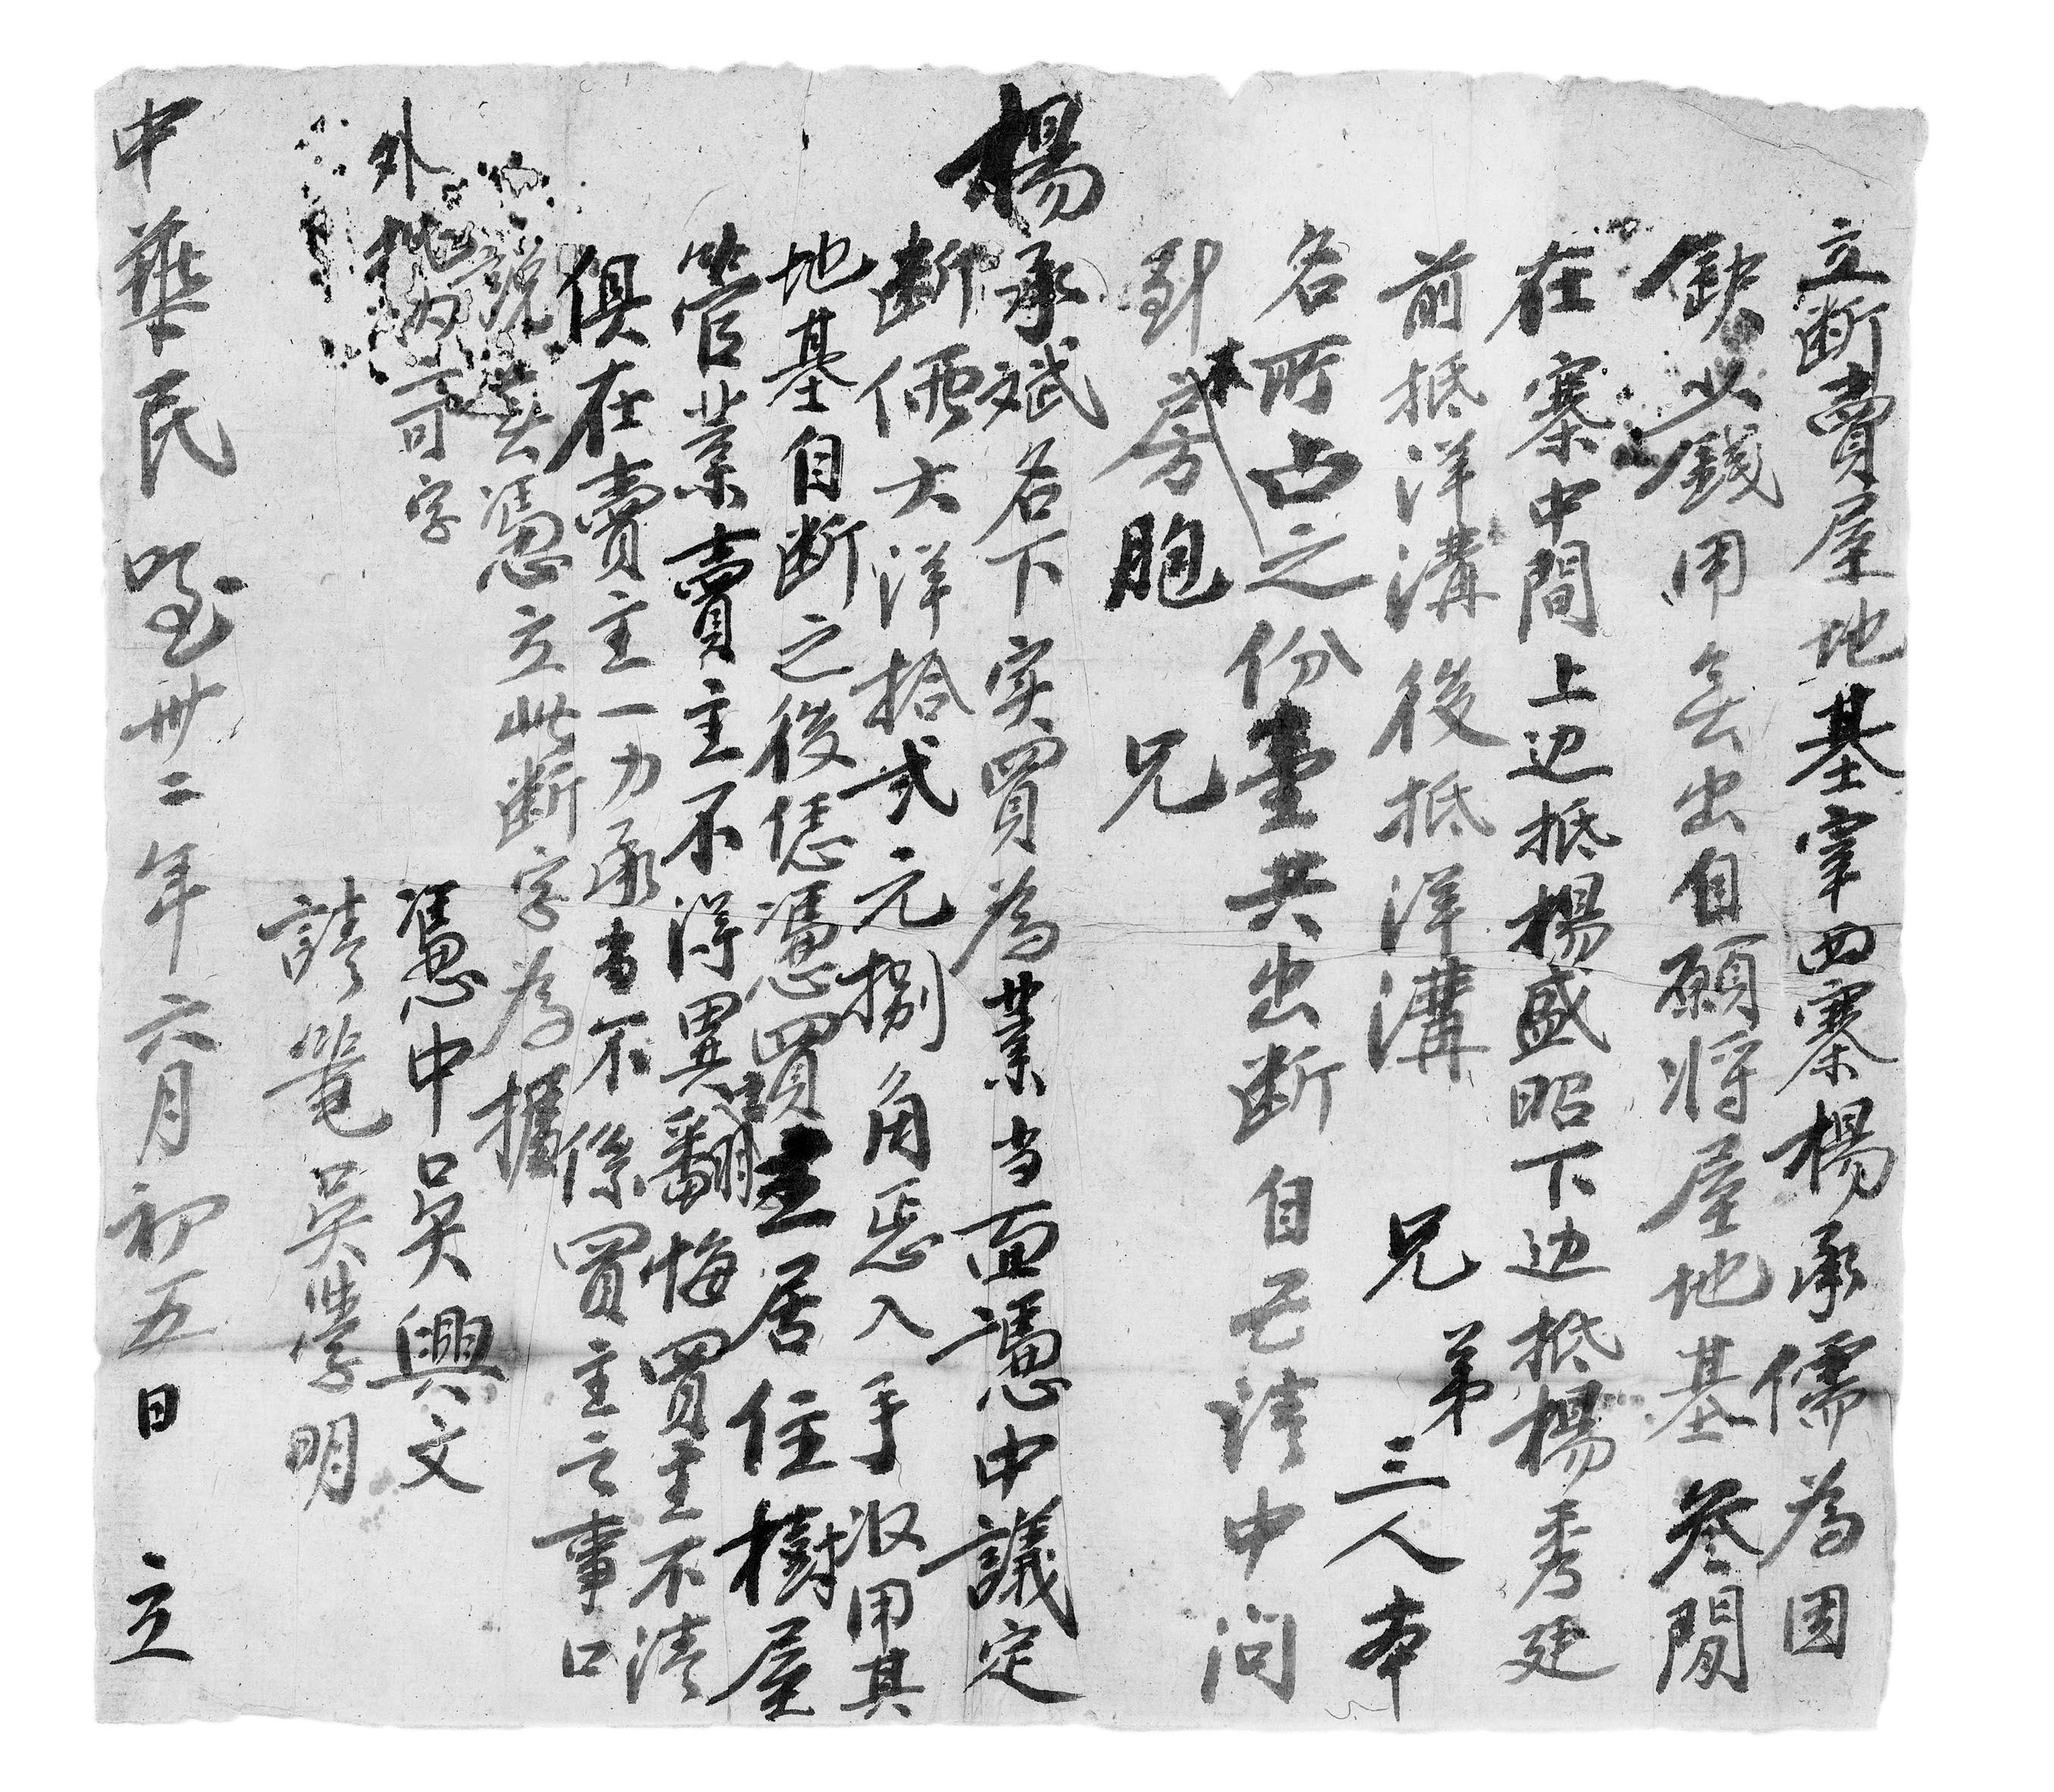 立断賣屋地基宰四寨楊承儒為因
缺少錢用無出自願将屋地基叁間
在寨中間上边抵楊盛昭下边抵楊秀廷
前抵洋溝後抵洋溝兄弟三人本
名所占之份壹共出断自己請中問
到本房胞兄
楊承斌名下实買為業当面憑中議定
断價大洋拾弍元捌角整入手収用其
地基自断之後恁憑買主居住樹屋
管業賣主不得異言翻悔買主不清
俱在賣主一力承当不係買主之事口
說無憑立此断字為據
外批内可字
憑中吳興文
請筆吳學明
中華民國卅二年六月初五日立